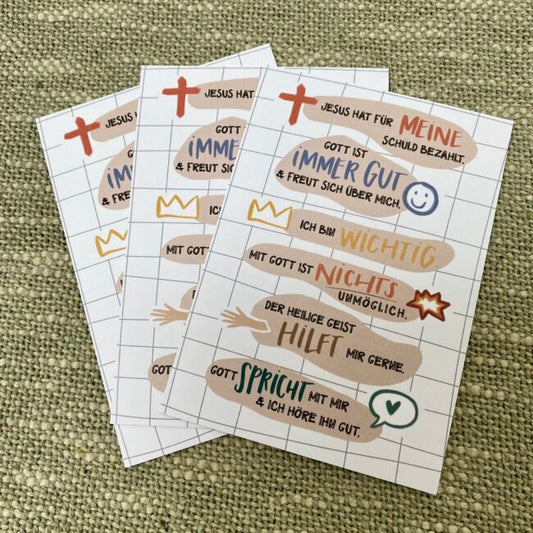 JESUS HAT
JESUS HAT
JESUS HAT FÜR MEINE
SCHULD BEZAHLT.
GOTT
IMME
& FREUT SIC
GOTT I
IMMER
& FREUT SICH
GOTT IST
IMMER GUT
& FREUT SICH ÜBER MICH.
ICH
ICH BIN WICHTIG
MIT GOTT
MIT GOTT IST NICHTS
UNMÖGLICH.
DER HEILIGE GEIST
HILFT MIR GERNE.
GOTT
GOTT SPRICHT MIT MIR
& ICH HÖRE IHN GUT.